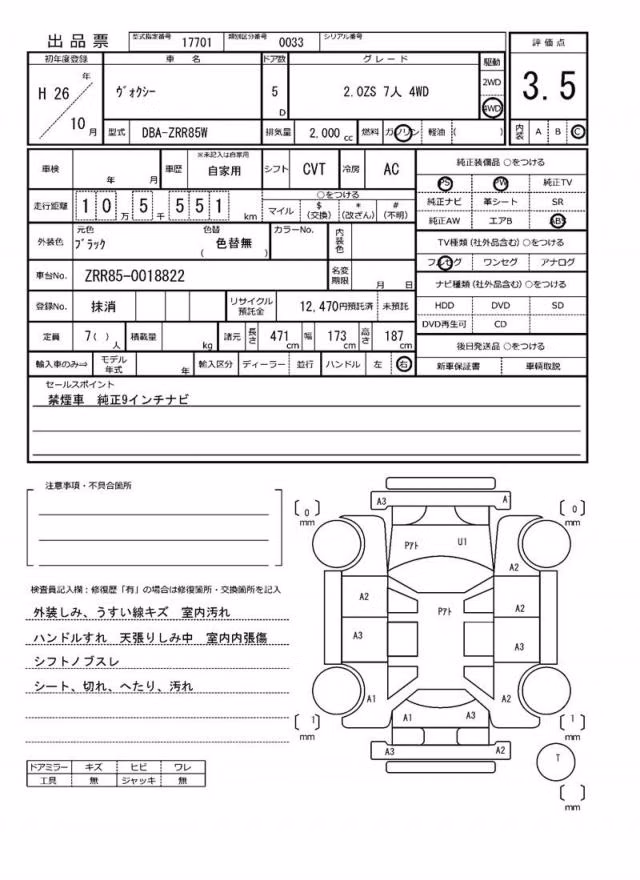 出品票 型式指定番号 17701 類別区分番号 0033 シリアル番号
評価点
3.5
内装 A B C
初年度登録 車名 ドア数 グレード 駆動
H 26 年 10 月
ヴォクシー 5 D 2.0ZS 7人 4WD 2WD 4WD
型式 DBA-ZRR85W 排気量 2,000 cc 燃料 ガソリン 軽油 ( )
車検 年 月 車歴 ※未記入は自家用 自家用 シフト CVT 冷房 AC
走行距離 10万5千551 km ○をつける
マイル $(交換) *(改ざん) #(不明)
外装色 元色 ブラック 色替 ( 色替無 ) カラーNo. 内装色
車台No. ZRR85-0018822 名変期限 月 日
登録No. 抹消 リサイクル預託金 12,470円預託済 未預託
定員 7( )人 積載量 kg 諸元 長さ 471 cm 幅 173 cm 高さ 187 cm
輸入車のみ⇒ モデル年式 年 輸入区分 ディーラー 並行 ハンドル 左 右
純正装備品 ○をつける
PS PW 純正TV
純正ナビ 革シート SR
純正AW エアB ABS
TV種類(社外品含む)○をつける
フルセグ ワンセグ アナログ
ナビ種類(社外品含む)○をつける
HDD DVD SD
DVD再生可 CD
後日発送品 ○をつける
新車保証書 車輌取説
セールスポイント
禁煙車 純正9インチナビ
注意事項・不具合箇所
検査員記入欄:修復歴「有」の場合は修復箇所・交換箇所を記入
外装しみ、うすい線キズ 室内汚れ
ハンドルすれ 天張りしみ中 室内内張傷
シフトノブスレ
シート、切れ、へたり、汚れ
ドアミラー キズ ヒビ ワレ
工具 無 ジャッキ 無
A3 A
[0] mm [0] mm
Pｱﾄ U1
A2
A2 Pｱﾄ A2
A3 A3
A1 A2
A1 A3
[1] mm [1] mm
A3 A2
T
[ ] mm